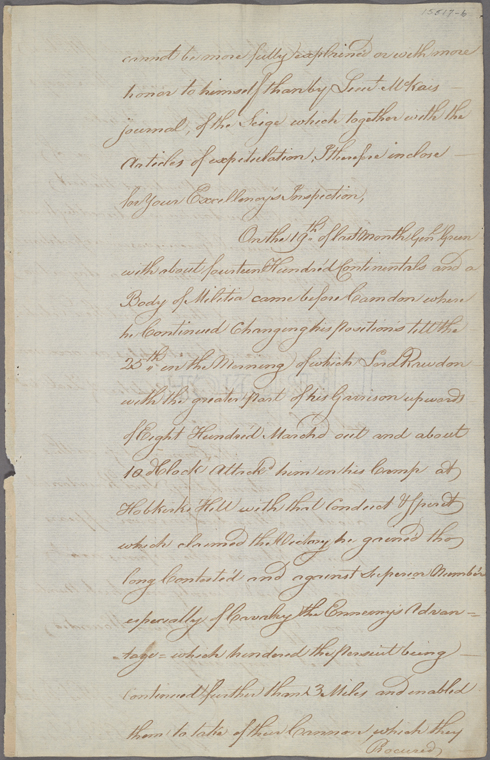 15517-6
cannot be more fully explained or with more
honor to himself than by Lieut McKais
journal, of the Seige which together with the
Articles of capitulation, I therefore inclose
for Your Excellencys Inspection,
On the 19th. of last Month Genl. Green
with about fourteen Hundred Continentals and a
Body of Melitia came before Camdon where
he Continued Changing his Positions till the
25th. in the Morning of which Lord Rawdon
with the greater part of his Garrison upwards
of Eight Hundred March'd out and about
10 oClock Attack'd him in his Camp at
Hobkirks Hill with that Conduct & spirit
which claimed the Victory he gained tho
long Contested and against Superior Number
especially of Cavalry the Ennemys Advan=
tage= which hendered the persuit being
continued further than 3 Miles and enabled
them to take of their Cannon, which they
Procured,